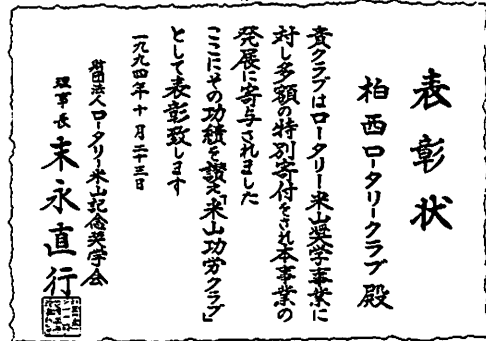 表彰状
柏西ロータリークラブ殿
貴クラブはロータリー米山奨学事業に
対し多額の特別寄付をされ本事業の
発展に寄与されました
ここにその功績を讃え「米山功労クラブ」
として表彰致します
一九九四年十月二十三日
財団法人ロータリー米山記念奨学会
理事長 末永直行